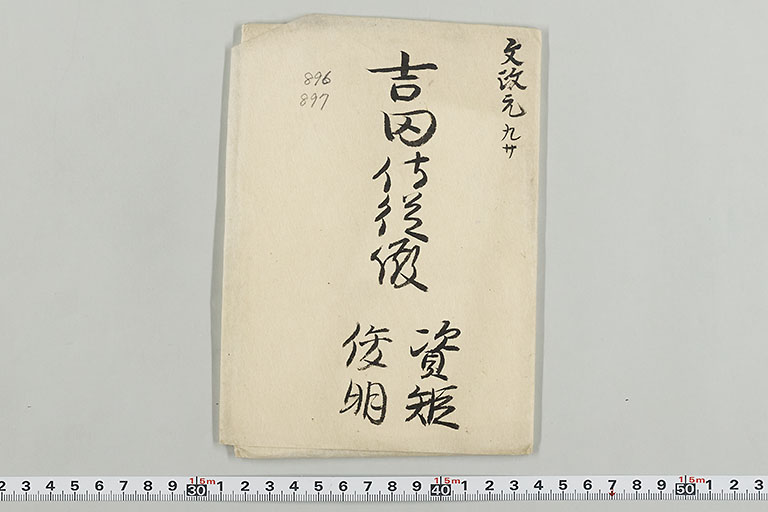 文政元 九廿
吉田侍従徴
資矩
俊明
896
897
2 3 4 5 6 7 8 9 30 1 2 3 4 5 6 7 8 9 40 1 2 3 4 5 6 7 8 9 50 1 2 3
1.5m 1.5m 1.5m